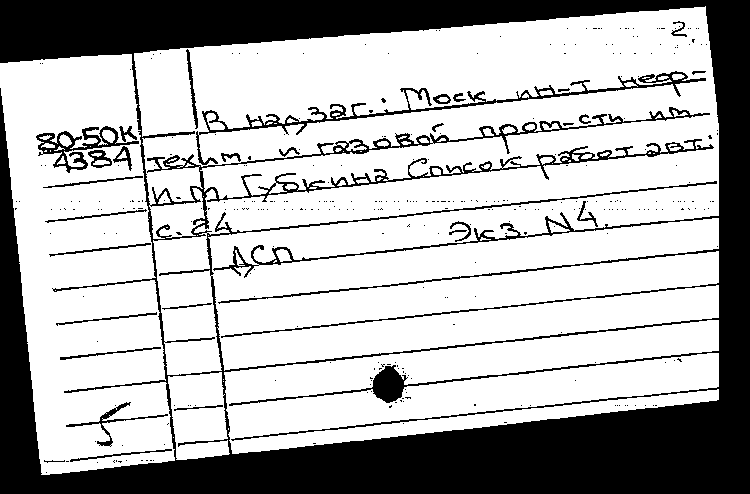 2.
В надзаг.: Моск. ин-т неф-
80-50к
4384
техим. и газовой пром-сти им.
И.М. Губкина Список работ авт.:
с. 24.
ДСП. Экз. N4.
5